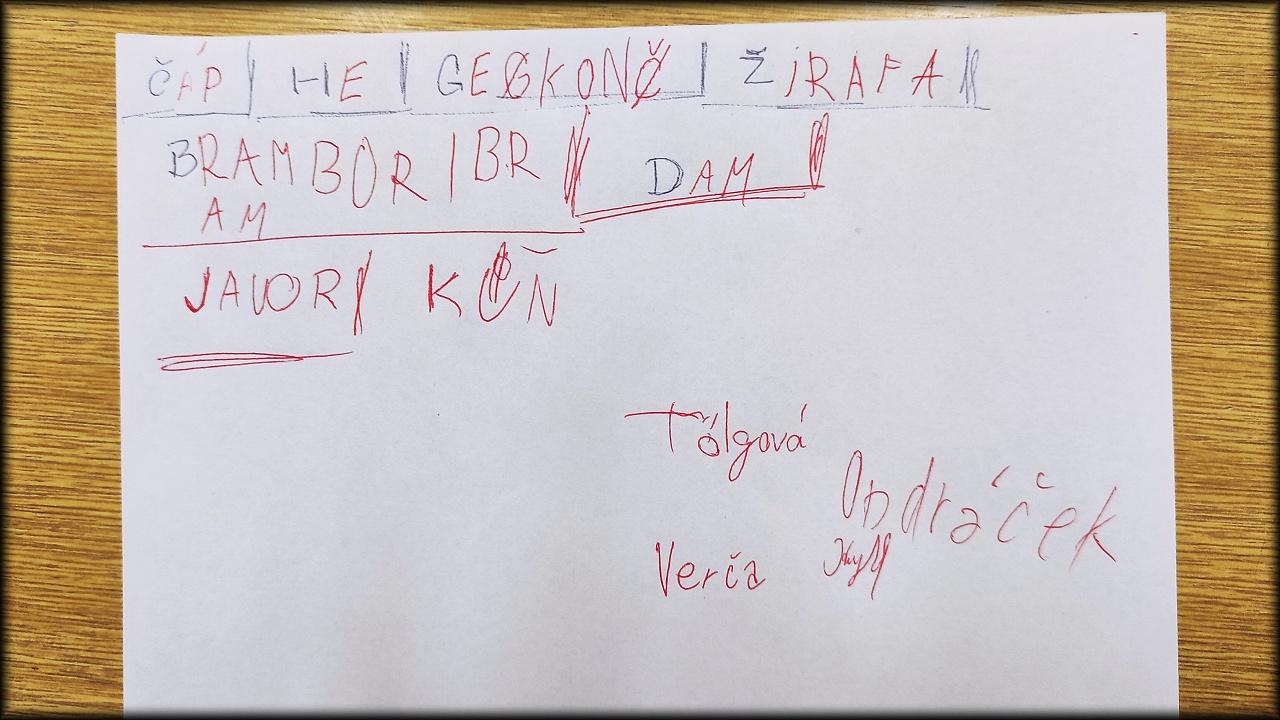 ČÁP HE GEGKONČ ŽIRAFA
BRAMBOR BR DAM
AM
JAVOR KŮŇ
Tölgová
Ondráček
Verča